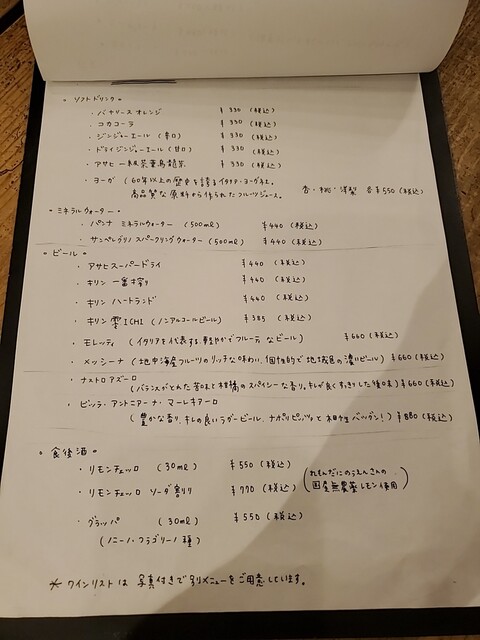 ○ ソフトドリンク○
・バナリース オレンジ ¥330 (税込)
・コカコーラ ¥330 (税込)
・ジンジャーエール (辛口) ¥330 (税込)
・ドライジンジャーエール (甘口) ¥330 (税込)
・アサヒ 一級茶葉烏龍茶 ¥330 (税込)
・ヨーガ (60年以上の歴史を誇るイタリア・ヨーガ社。
高品質な原料から作られたフルーツジュース。 杏・桃・洋梨 各¥550 (税込)
○ミネラルウォーター○
・パンナ ミネラルウォーター (500ml) ¥440 (税込)
・サンペレグリノ スパークリングウォーター (500ml) ¥440 (税込)
○ ビール○
・アサヒスーパードライ ¥440 (税込)
・キリン 一番搾り ¥440 (税込)
・キリン ハートランド ¥440 (税込)
・キリン 零ICHI (ノンアルコールビール) ¥385 (税込)
・モレッティ (イタリアを代表する軽やかでフルーティなビール) ¥660 (税込)
・メッシーナ (地中海産フルーツのリッチな味わい、個性的で地域色の濃いビール) ¥660 (税込)
・ナストロアズーロ
(バランスがとれた苦味と柑橘のスパイシーな香り。キレが良くすっきりした後味) ¥660 (税込)
・ビッラ・アントニアーナ・マーレキアーロ
(豊かな香り、キレの良いラガービール、ナポリピッツァと相性バツグン!) ¥880 (税込)
○ 食後酒○
・リモンチェッロ (30ml) ¥550 (税込)
(れもんだにのうえんさんの
国産無農薬レモン使用)
・リモンチェッロ ソーダ割り ¥770 (税込)
・グラッパ (30ml) ¥550 (税込)
(ノニーノ・フラゴリーノ種)
※ ワインリストは 写真付きで別メニューをご用意しています。